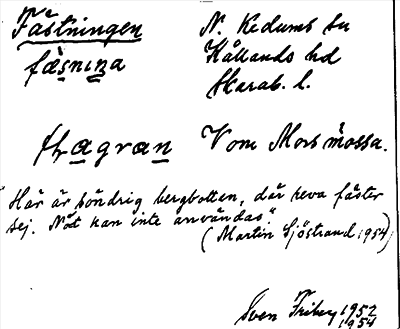 Fästningen N. Kedums sn
fæsnıŋa Kållands hd
Skarab. l.
fɩagran Vom Mors mossa.
"Här är söndrig bergbotten, där reva fäster
sej. Nöt kan inte användas"
(Martin Sjöstrand 1954)
Sven Friberg 1952
1954